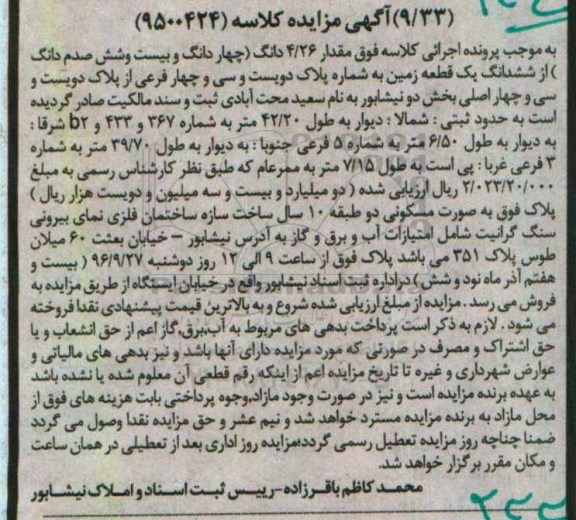 (۹/۳۳) آگهی مزایده کلاسه (۹۵۰۰۴۲۴)
به موجب پرونده اجرائی کلاسه فوق مقدار ۴/۲۶ دانگ (چهار دانگ و بیست وشش صدم دانگ
) از ششدانگ یک قطعه زمین به شماره پلاک دویست و سی و چهار فرعی از پلاک دویست و
سی و چهار اصلی بخش دو نیشابور به نام سعید محت آبادی ثبت و سند مالکیت صادر گردیده
است به حدود ثبتی : شمالا : دیوار به طول ۴۲/۲۰ متر به شماره ۳۶۷ و ۴۳۳ و b۲ شرقا :
به دیوار به طول ۶/۵۰ متر به شماره ۵ فرعی جنوبا : به دیوار به طول ۳۹/۷۰ متر به شماره
۳ فرعی غربا : پی است به طول ۷/۱۵ متر به ممرعام که طبق نظر کارشناس رسمی به مبلغ
۲/۰۲۳/۲۰/۰۰۰ ریال ارزیابی شده ( دو میلیارد و بیست و سه میلیون و دویست هزار ریال )
پلاک فوق به صورت مسکونی دو طبقه ۱۰ سال ساخت سازه ساختمان فلزی نمای بیرونی
سنگ گرانیت شامل امتیازات آب و برق و گاز به آدرس نیشابور – خیابان بعثت ۶۰ میلان
طوس پلاک ۳۵۱ می باشد پلاک فوق از ساعت ۹ الی ۱۲ روز دوشنبه ۹۶/۹/۲۷ ( بیست و
هفتم آذر ماه نود و شش ) دراداره ثبت اسناد نیشابور واقع در خیابان ایستگاه از طریق مزایده به
فروش می رسد . مزایده از مبلغ ارزیابی شده شروع و به بالاترین قیمت پیشنهادی نقدا فروخته
می شود . لازم به ذکر است پرداخت بدهی های مربوط به آب،برق،گاز اعم از حق انشعاب و یا
حق اشتراک و مصرف در صورتی که مورد مزایده دارای آنها باشد و نیز بدهی های مالیاتی و
عوارض شهرداری و غیره تا تاریخ مزایده اعم از اینکه رقم قطعی آن معلوم شده یا نشده باشد
به عهده برنده مزایده است و نیز در صورت وجود مازاد،وجوه پرداختی بابت هزینه های فوق از
محل مازاد به برنده مزایده مسترد خواهد شد و نیم عشر و حق مزایده نقدا وصول می گردد
ضمنا چناچه روز مزایده تعطیل رسمی گردد،مزایده روز اداری بعد از تعطیلی در همان ساعت
و مکان مقرر برگزار خواهد شد.
محمد کاظم باقرزاده – رییس ثبت اسناد و املاک نیشابور